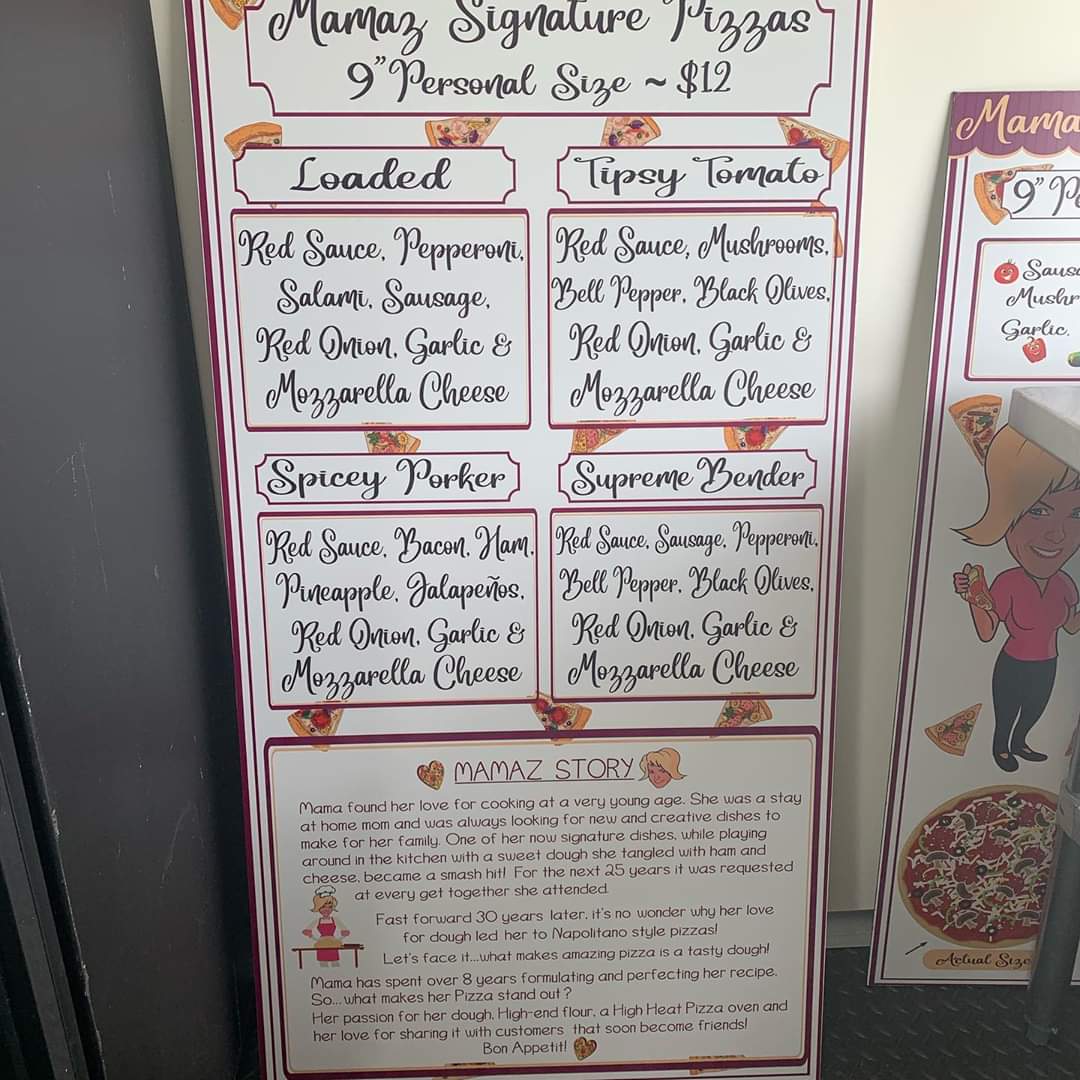 Mamaz Signature Pizzas
9" Personal Size ~ $12
Loaded
Red Sauce, Pepperoni,
Salami, Sausage,
Red Onion, Garlic &
Mozzarella Cheese
Tipsy Tomato
Red Sauce, Mushrooms,
Bell Pepper, Black Olives,
Red Onion, Garlic &
Mozzarella Cheese
Spicey Porker
Red Sauce, Bacon, Ham,
Pineapple, Jalapeños,
Red Onion, Garlic &
Mozzarella Cheese
Supreme Bender
Red Sauce, Sausage, Pepperoni,
Bell Pepper, Black Olives,
Red Onion, Garlic &
Mozzarella Cheese
MAMAZ STORY
Mama found her love for cooking at a very young age. She was a stay
at home mom and was always looking for new and creative dishes to
make for her family. One of her now signature dishes, while playing
around in the kitchen with a sweet dough she tangled with ham and
cheese, became a smash hit! For the next 25 years it was requested
at every get together she attended.
Fast forward 30 years later, it's no wonder why her love
for dough led her to Napolitano style pizzas!
Let's face it...what makes amazing pizza is a tasty dough!
Mama has spent over 8 years formulating and perfecting her recipe.
So... what makes her Pizza stand out?
Her passion for her dough, High-end flour, a High Heat Pizza oven and
her love for sharing it with customers that soon become friends!
Bon Appetit!
Mama
9"
Garlic,
Actual